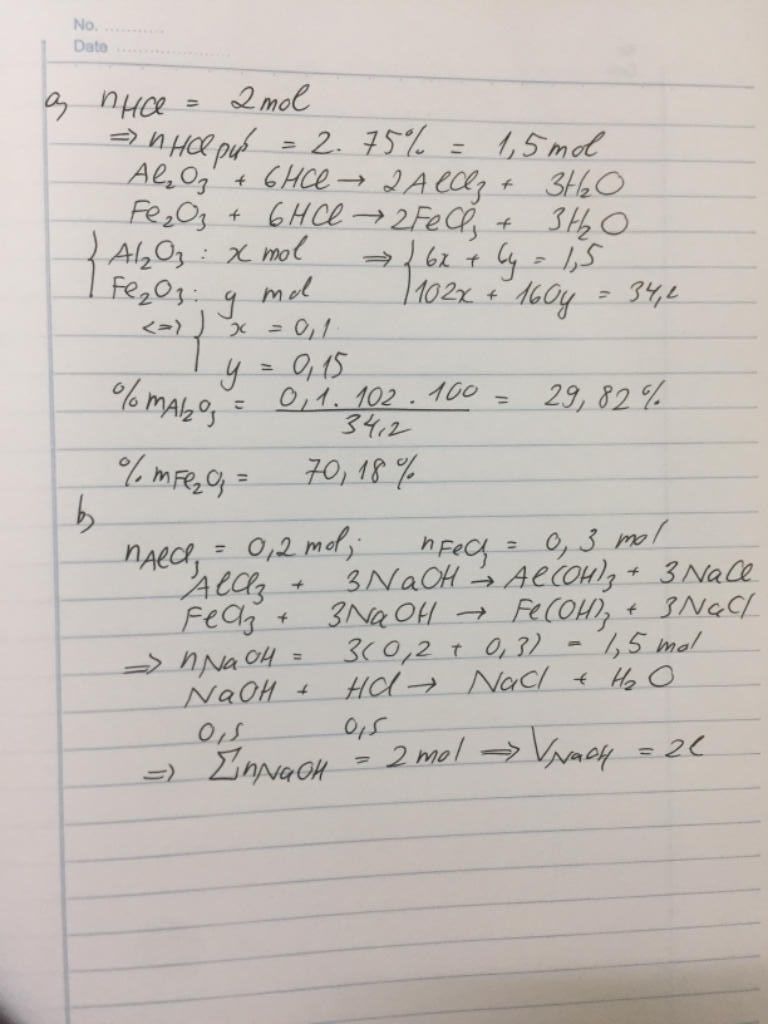 No. ...........
Date ........................
a, nHCl = 2mol
=> nHCl pứ = 2. 75% = 1,5 mol
Al₂O₃ + 6HCl → 2AlCl₃ + 3H₂O
Fe₂O₃ + 6HCl → 2FeCl₃ + 3H₂O
{ Al₂O₃ : x mol => { 6x + 6y = 1,5
Fe₂O₃ : y mol 102x + 160y = 34,2
<=> { x = 0,1
y = 0,15
% mAl₂O₃ = 0,1 . 102 . 100 / 34,2 = 29,82 %
% mFe₂O₃ = 70,18 %
b,
nAlCl₃ = 0,2 mol; nFeCl₃ = 0,3 mol
AlCl₃ + 3NaOH → Al(OH)₃ + 3NaCl
FeCl₃ + 3NaOH → Fe(OH)₃ + 3NaCl
=> nNaOH = 3(0,2 + 0,3) = 1,5 mol
NaOH + HCl → NaCl + H₂O
0,5 0,5
=> ΣnNaOH = 2 mol => VNaOH = 2l